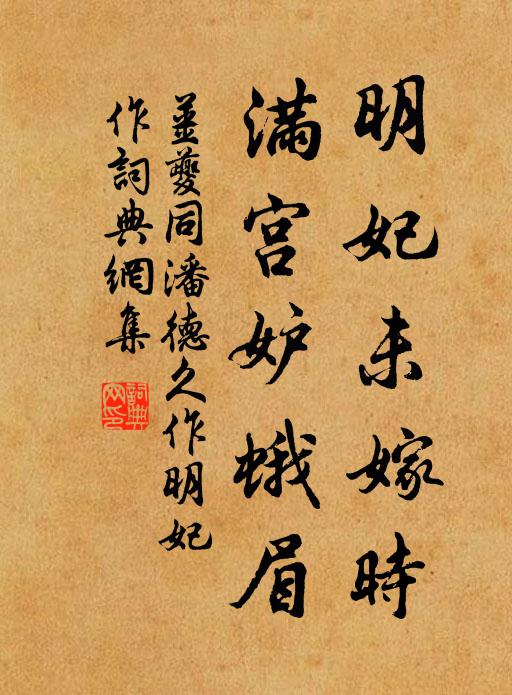 明妃未嫁時
滿宮妒蛾眉
姜夔同潘德久作明妃
作詞典網集
詞典
网印